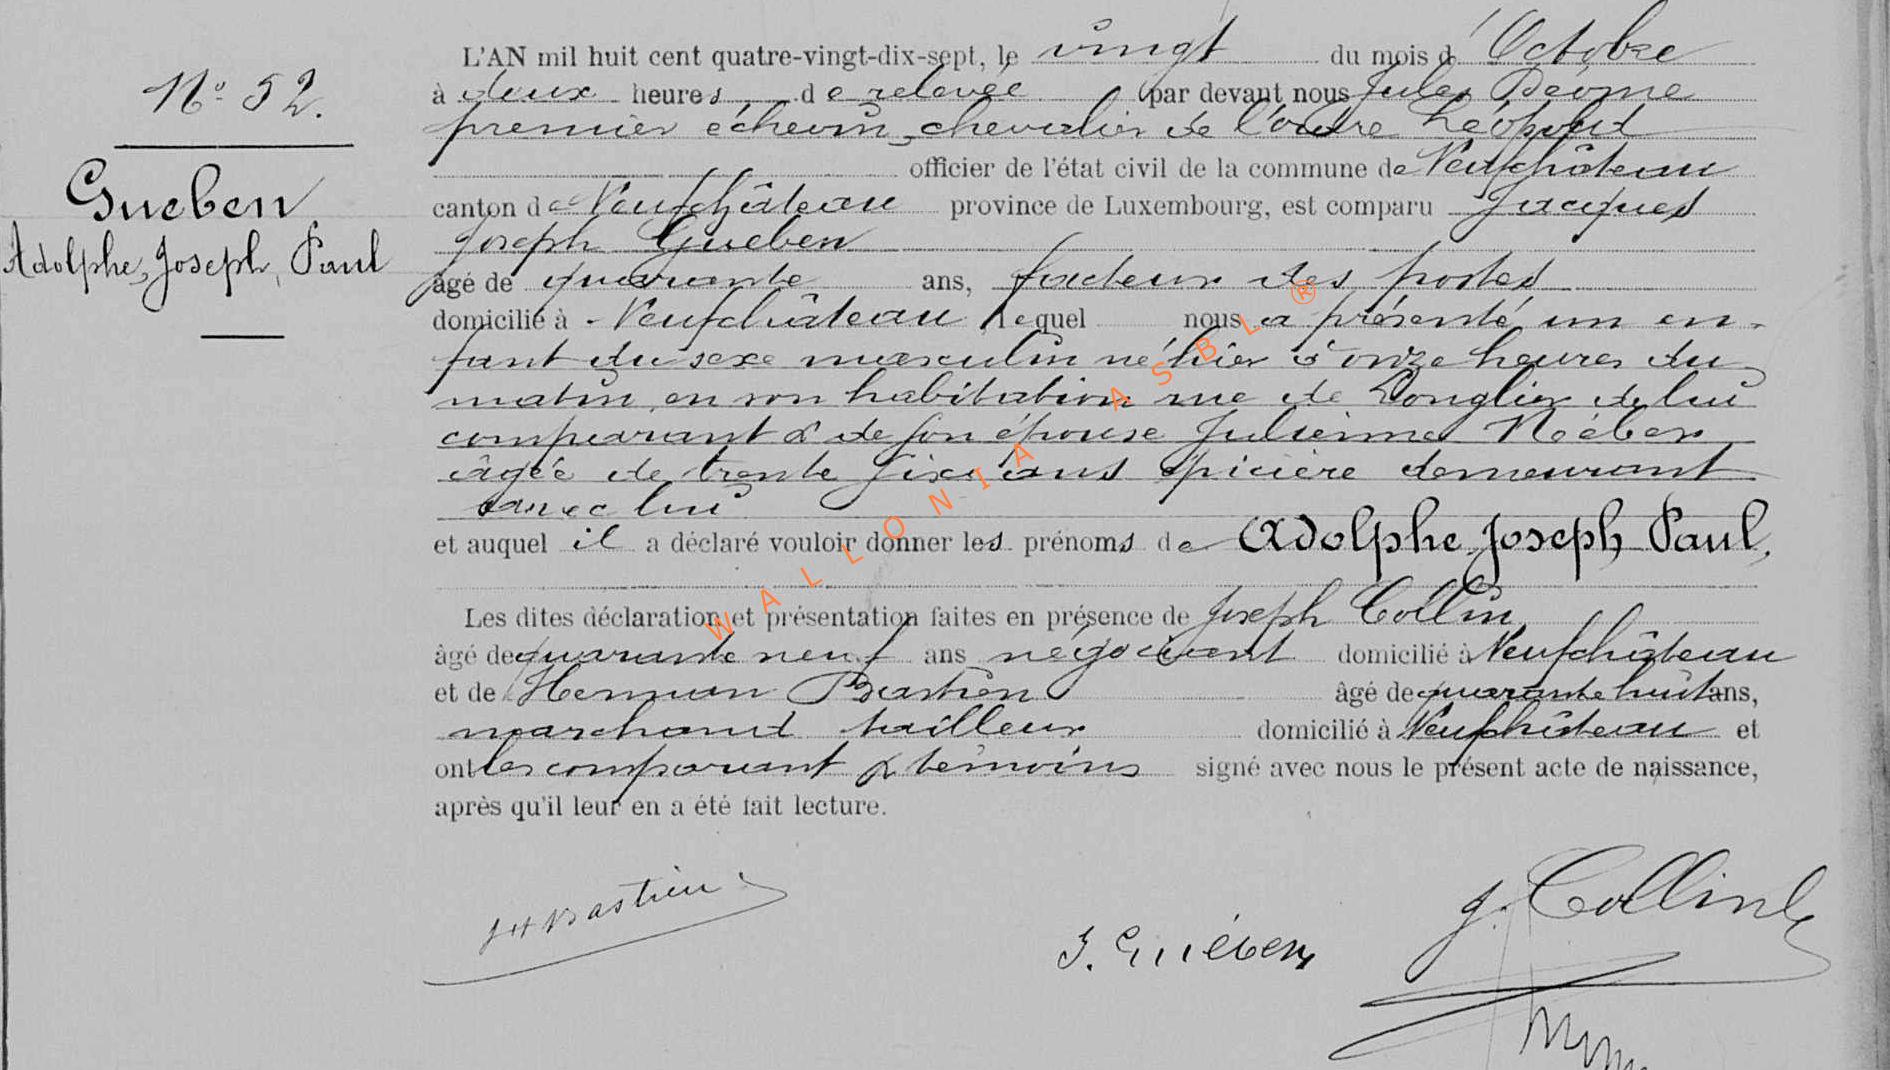 N° 52.
Gueben
Adolphe, Joseph, Paul
L'AN mil huit cent quatre-vingt-dix-sept, le vingt du mois d'Octobre
à deux heures de relevée par devant nous Jules
premier échevin, chevalier de l'ordre Léopold
officier de l'état civil de la commune de Neufchâteau
canton de Neufchâteau province de Luxembourg, est comparu Jacques
Joseph Gueben
âgé de quarante ans, facteur des postes
domicilié à Neufchâteau lequel nous a présenté un en-
fant du sexe masculin né hier à onze heures du
matin, en son habitation rue de Longlier de lui
comparant & de son épouse Julienne
âgée de trente six ans épicière demeurant
avec lui
et auquel il a déclaré vouloir donner les prénoms de Adolphe, Joseph, Paul,
Les dites déclaration et présentation faites en présence de Joseph Collin
âgé de quarante neuf ans négociant domicilié à Neufchâteau
et de Herman Bastien âgé de quarante huit ans,
marchand tailleur domicilié à Neufchâteau et
ont les comparant & témoins signé avec nous le présent acte de naissance,
après qu'il leur en a été fait lecture.
WALLONIA ASBL ®
Bastien
J. Guében
J. Collin